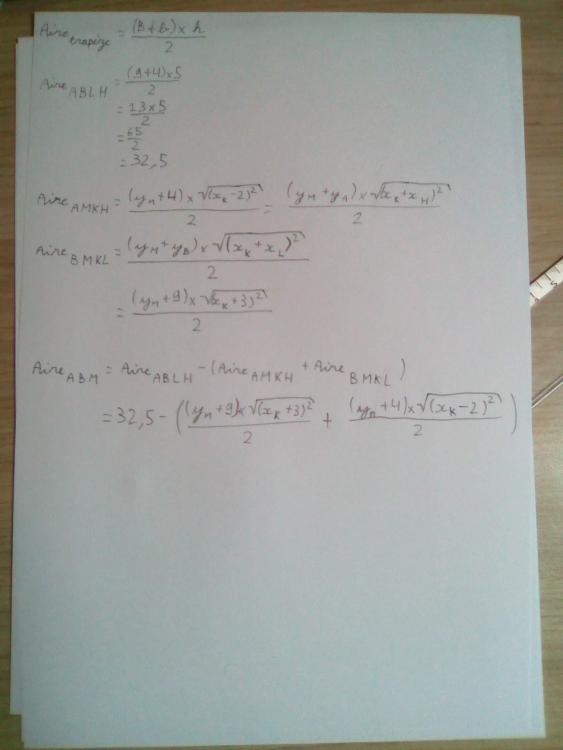 Aire trapèze = (B+b)×h / 2
Aire ABLH = (9+4)×5 / 2
= 13×5 / 2
= 65 / 2
= 32,5
Aire AMKH = (yM+4)×√(xK-2)² / 2 = (yM+yA)×√(xK+xH)² / 2
Aire BMKL = (yM+yB)×√(xK+xL)² / 2
= (yM+9)×√(xK+3)² / 2
Aire ABM = Aire ABLH - (Aire AMKH + Aire BMKL)
= 32,5 - ((yM+9)×√(xK+3)² / 2 + (yM+4)×√(xK-2)² / 2)